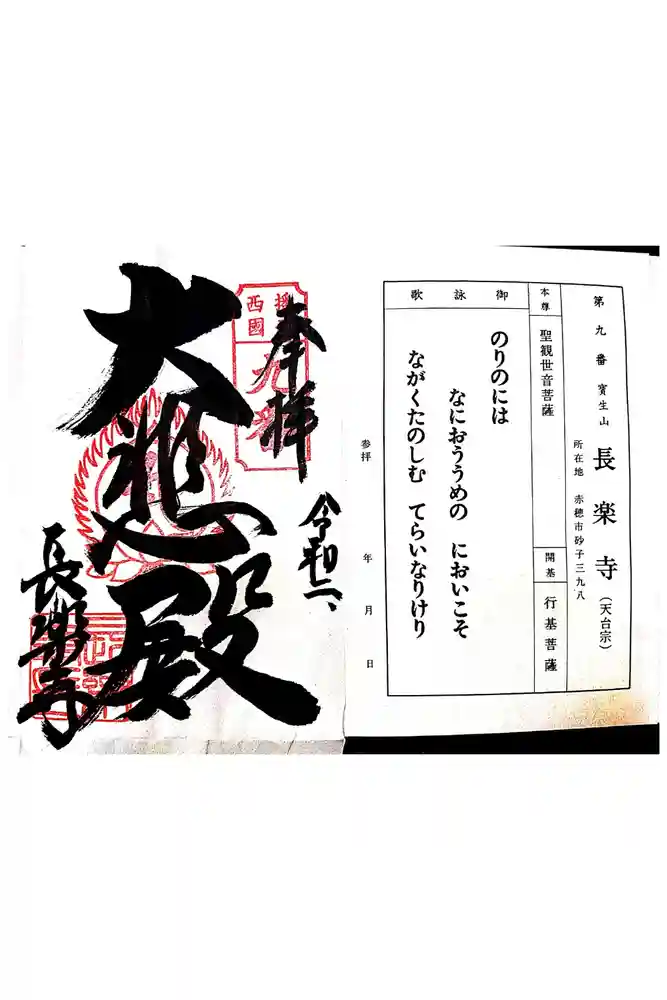 第九番 寳生山 長楽寺(天台宗)
所在地 赤穂市砂子三九八
本尊 聖観世音菩薩
開基 行基菩薩
御詠歌
のりのには
なにおううめの においこそ
ながくたのしむ てらいなりけり
参拝 年 月 日
奉拝
令和二、
播西國
九番
大悲殿
長樂寺